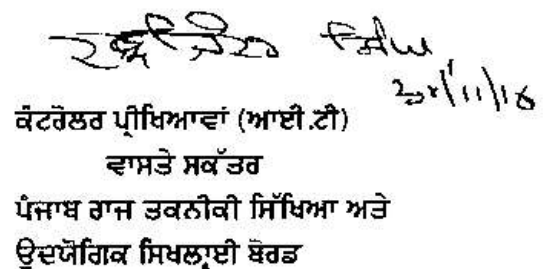 ਸਿੰਘ
ਕੰਟਰੋਲਰ ਪ੍ਰੀਖਿਆਵਾਂ (ਆਈ.ਟੀ)
ਵਾਸਤੇ ਸਕੱਤਰ
ਪੰਜਾਬ ਰਾਜ ਤਕਨੀਕੀ ਸਿੱਖਿਆ ਅਤੇ
ਉਦਯੋਗਿਕ ਸਿਖਲਾਈ ਬੋਰਡ